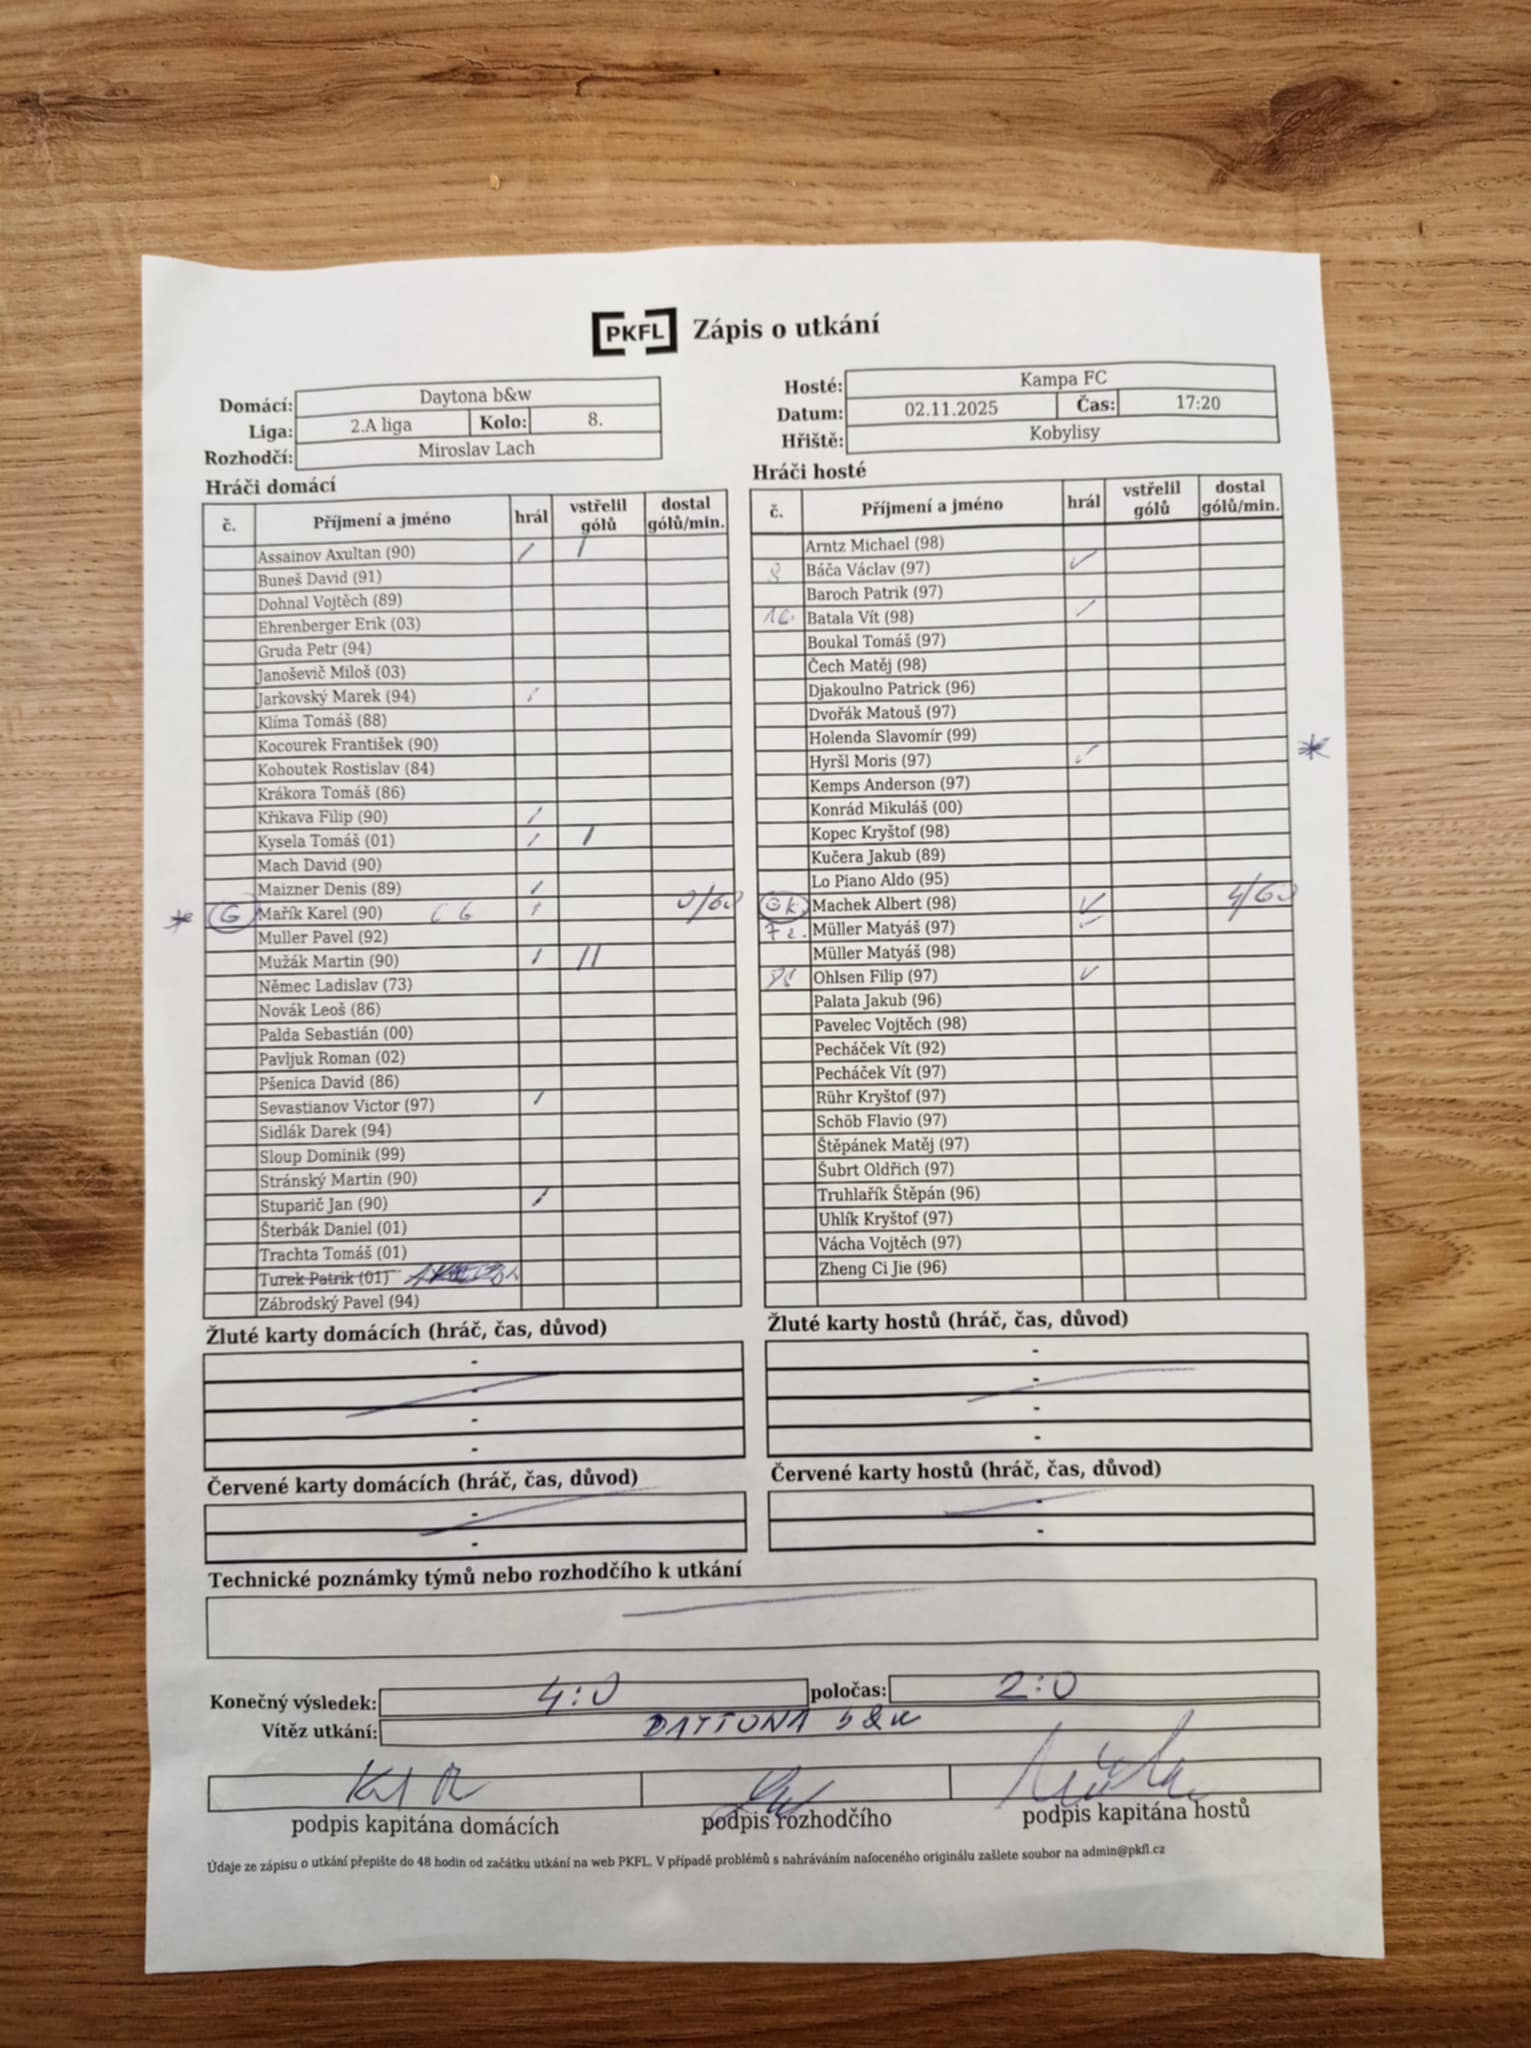 PKFL Zápis o utkání
Domácí: Daytona b&w
Liga: 2.A liga Kolo: 8.
Rozhodčí: Miroslav Lach
Hosté: Kampa FC
Datum: 02.11.2025 Čas: 17:20
Hřiště: Kobylisy
Hráči domácí
č. Příjmení a jméno hrál vstřelil gólů dostal gólů/min.
Assainov Axultan (90) / /
Buneš David (91)
Dohnal Vojtěch (89)
Ehrenberger Erik (03)
Gruda Petr (94)
Janoševič Miloš (03)
Jarkovský Marek (94) /
Klíma Tomáš (88)
Kocourek František (90)
Kohoutek Rostislav (84)
Krákora Tomáš (86)
Křikava Filip (90) /
Kysela Tomáš (01) / /
Mach David (90)
Maizner Denis (89) /
* G Mařík Karel (90) / 0/60
Muller Pavel (92)
Mužák Martin (90) / //
Němec Ladislav (73)
Novák Leoš (86)
Palda Sebastián (00)
Pavljuk Roman (02)
Pšenica David (86)
Sevastianov Victor (97) /
Sidlák Darek (94)
Sloup Dominik (99)
Stránský Martin (90)
Stuparič Jan (90) /
Šterbák Daniel (01)
Trachta Tomáš (01)
Turek Patrik (01)
Zábrodský Pavel (94)
Hráči hosté
č. Příjmení a jméno hrál vstřelil gólů dostal gólů/min.
Arntz Michael (98)
8 Báča Václav (97) ✓
Baroch Patrik (97)
Batala Vít (98) ✓
Boukal Tomáš (97)
Čech Matěj (98)
Djakoulno Patrick (96)
Dvořák Matouš (97)
Holenda Slavomír (99)
Hyršl Moris (97) ✓ *
Kemps Anderson (97)
Konrád Mikuláš (00)
Kopec Kryštof (98)
Kučera Jakub (89)
Lo Piano Aldo (95)
Gk. Machek Albert (98) ✓ 4/60
Müller Matyáš (97) ✓
Müller Matyáš (98)
Ohlsen Filip (97) ✓
Palata Jakub (96)
Pavelec Vojtěch (98)
Pecháček Vít (92)
Pecháček Vít (97)
Rühr Kryštof (97)
Schöb Flavio (97)
Štěpánek Matěj (97)
Šubrt Oldřich (97)
Truhlařík Štěpán (96)
Uhlík Kryštof (97)
Vácha Vojtěch (97)
Zheng Ci Jie (96)
Žluté karty domácích (hráč, čas, důvod)
-
-
-
-
Žluté karty hostů (hráč, čas, důvod)
-
-
-
-
Červené karty domácích (hráč, čas, důvod)
-
-
Červené karty hostů (hráč, čas, důvod)
-
-
Technické poznámky týmů nebo rozhodčího k utkání
Konečný výsledek: 4:0 poločas: 2:0
Vítěz utkání: DAYTONA b&w
podpis kapitána domácích podpis rozhodčího podpis kapitána hostů
Údaje ze zápisu o utkání přepište do 48 hodin od začátku utkání na web PKFL. V případě problémů s nahráváním nafoceného originálu zašlete soubor na admin@pkfl.cz